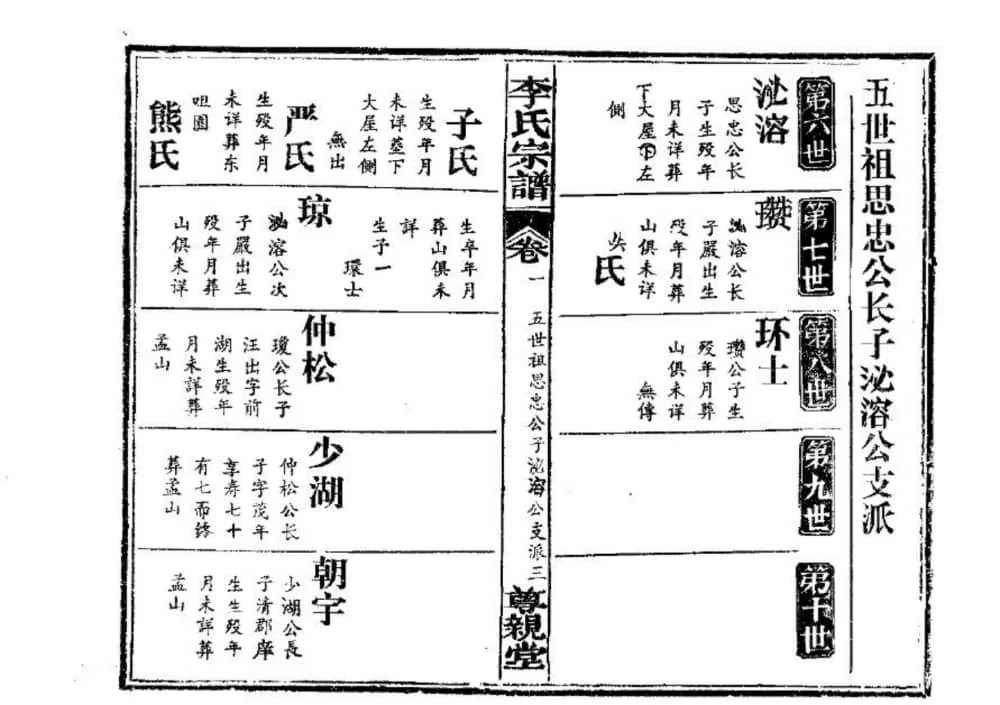 五世祖思忠公长子泌溶公支派
第六世
泌溶
思忠公长
子生殁年
月未详葬
下大屋下左
侧
第七世
瓒
泌溶公长
子嚴出生
殁年月葬
山俱未详
氏
第八世
环士
瓒公子生
殁年月葬
山俱未详
無傳
第九世
第十世
李氏宗譜
卷一
五世祖思忠公子泌溶公支派三
尊親堂
子氏
生殁年月
未详塟下
大屋左侧
無出
严氏
生殁年月
未详葬东
咀園
熊氏
生卒年月
葬山俱未
詳
生子一
環士
琼
泌溶公次
子嚴出生
殁年月葬
山俱未详
仲松
瓊公长子
汪出字前
湖生殁年
月未詳葬
孟山
少湖
仲松公长
子字茂年
享寿七十
有七而終
葬孟山
朝宇
少湖公長
子清郡庠
生生殁年
月未詳葬
孟山